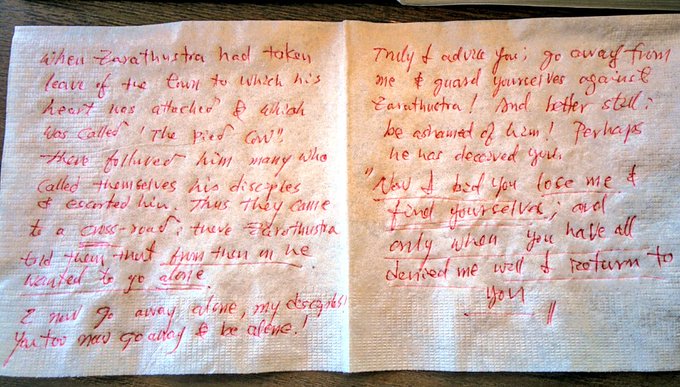 When Zarathustra had taken
leave of the town to which his
heart was attached & which
was called "The Pied Cow".
There followed him many who
called themselves his disciples
& escorted him. Thus they came
to a cross-road; there Zarathustra
told them that from then on he
wanted to go alone.
I now go away alone, my disciples!
You too now go away & be alone!
Truly I advise you; go away from
me & guard yourselves against
Zarathustra! And better still:
be ashamed of him! Perhaps
he has deceived you.
"Now I bid you lose me &
find yourselves; and
only when you have all
denied me will I return to
you"